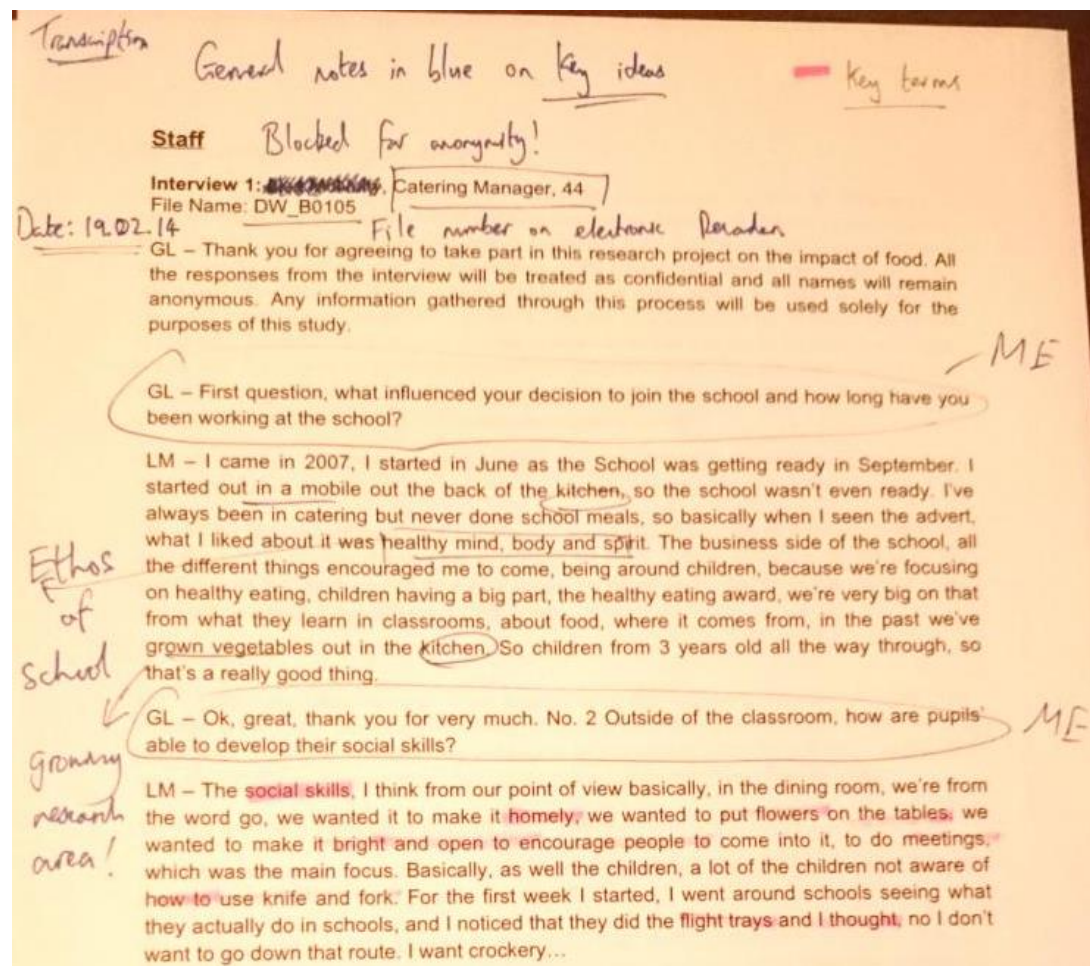 Transcription
General notes in blue on Key ideas
Key terms
Staff Blocked for anonymity!
Interview 1: , Catering Manager, 44
File Name: DW_B0105
Date: 19.02.14 File number on electronic
GL – Thank you for agreeing to take part in this research project on the impact of food. All
the responses from the interview will be treated as confidential and all names will remain
anonymous. Any information gathered through this process will be used solely for the
purposes of this study.
ME
GL – First question, what influenced your decision to join the school and how long have you
been working at the school?
LM – I came in 2007, I started in June as the School was getting ready in September. I
started out in a mobile out the back of the kitchen, so the school wasn't even ready. I've
always been in catering but never done school meals, so basically when I seen the advert,
what I liked about it was healthy mind, body and spirit. The business side of the school, all
the different things encouraged me to come, being around children, because we're focusing
on healthy eating, children having a big part, the healthy eating award, we're very big on that
from what they learn in classrooms, about food, where it comes from, in the past we've
grown vegetables out in the kitchen. So children from 3 years old all the way through, so
that's a really good thing.
Ethos
of
School
GL – Ok, great, thank you for very much. No. 2 Outside of the classroom, how are pupils'
able to develop their social skills?
ME
growing
research
area!
LM – The social skills, I think from our point of view basically, in the dining room, we're from
the word go, we wanted it to make it homely, we wanted to put flowers on the tables, we
wanted to make it bright and open to encourage people to come into it, to do meetings,
which was the main focus. Basically, as well the children, a lot of the children not aware of
how to use knife and fork. For the first week I started, I went around schools seeing what
they actually do in schools, and I noticed that they did the flight trays and I thought, no I don't
want to go down that route. I want crockery…